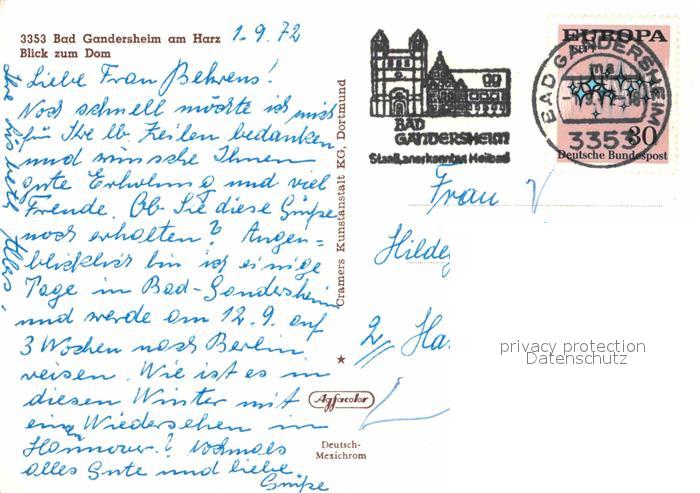 3353 Bad Gandersheim am Harz
Blick zum Dom
1.9.72
Liebe Frau Behrens!
Noch schnell möchte ich mich
für Ihre lb. Zeilen bedanken
und wünsche Ihnen
gute Erholung und viel
Freude. Ob Sie diese Grüße
noch erhalten? Augen=
blicklich bin ich einige
Tage in Bad-Gandersheim
und werde am 12.9. auf
3 Wochen nach Berlin
reisen. Wie ist es in
diesen Winter mit
ein Wiedersehen in
Hannover? Nochmals
alles Gute und liebe
Grüße
Cramers Kunstanstalt KG, Dortmund
Agfacolor
Deutsch-
Mexichrom
BAD
GANDERSHEIM
Staatl. anerkanntes Heilbad
EUROPA
CEPT
BAD GANDERSHEIM
3353
30
Deutsche Bundespost
Frau
Hilde
2 Ha
privacy protection
Datenschutz